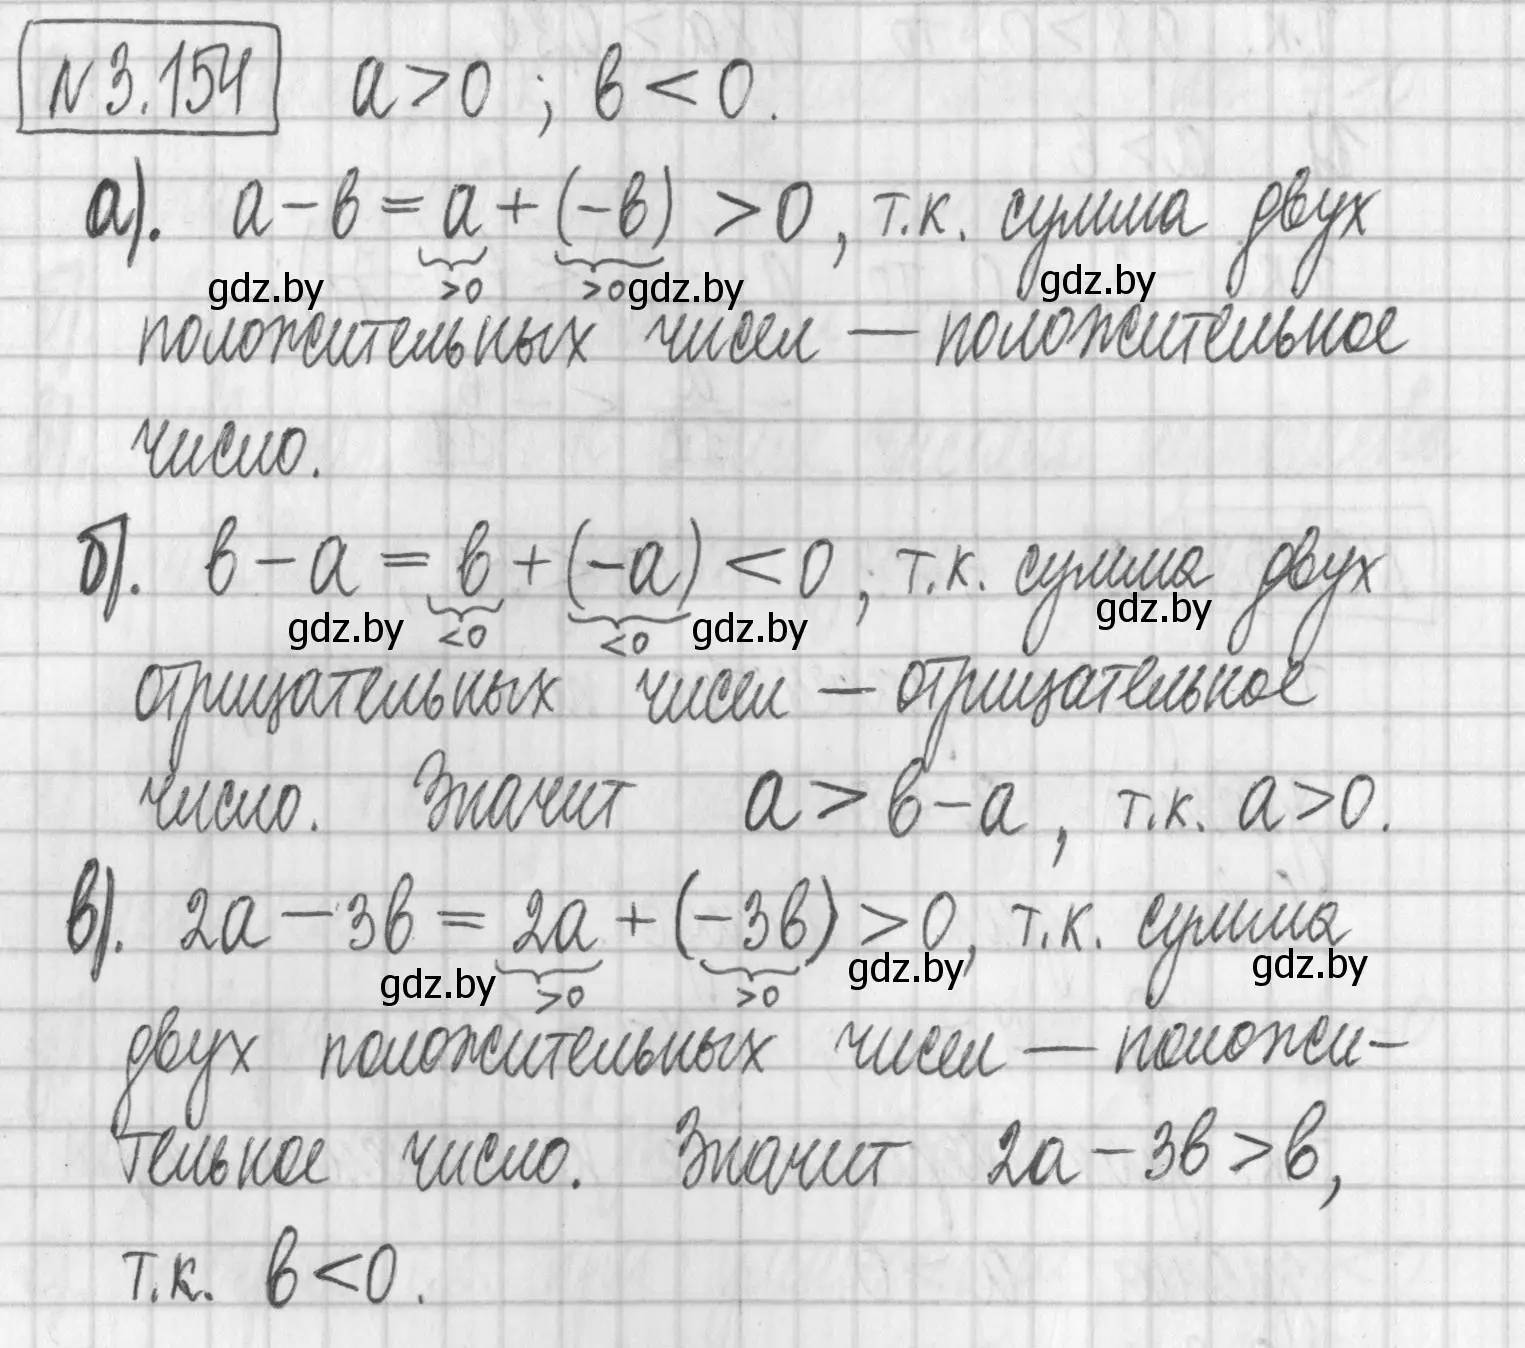 N 3.154 a > 0 ; в < 0.
а). a - в = a + (-в) > 0, т.к. сумма двух
>0 >0
gdz.by gdz.by gdz.by
положительных чисел — положительное
число.
б). в - a = в + (-a) < 0, т.к. сумма двух
<0 <0
gdz.by gdz.by gdz.by
отрицательных чисел — отрицательное
число. Значит a > в - a, т.к. a > 0.
в). 2a - 3в = 2a + (-3в) > 0, т.к. сумма
>0 >0
gdz.by gdz.by gdz.by
двух положительных чисел — положи-
тельное число. Значит 2a - 3в > в,
т.к. в < 0.